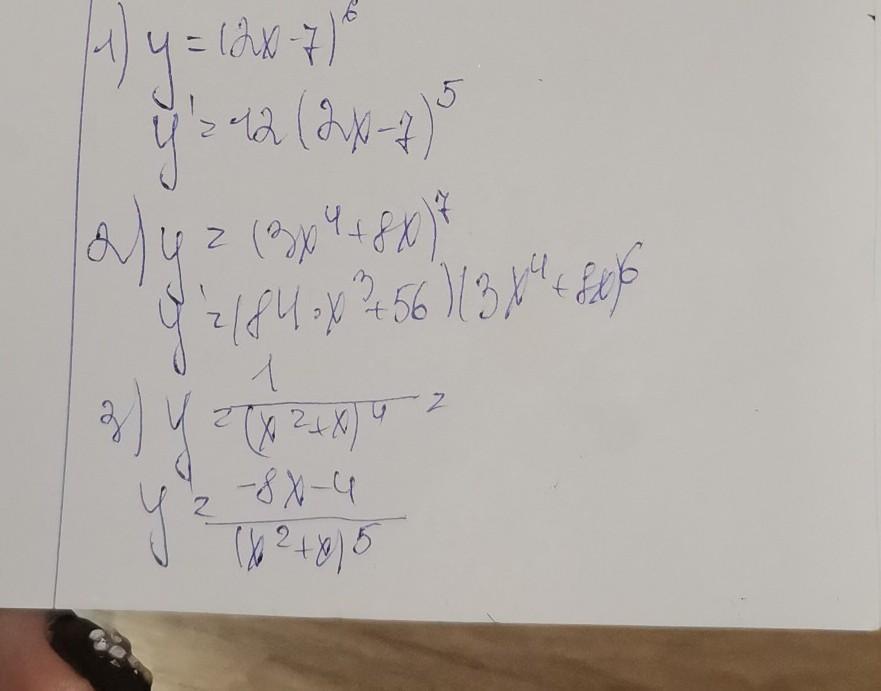 1) y = (2x-7)^6
y' = 12(2x-7)^5
2) y = (3x^4+8x)^7
y' = (84·x^3+56)(3x^4+8x)^6
3) y = 1/(x^2+x)^4 =
y' = -8x-4/(x^2+x)^5